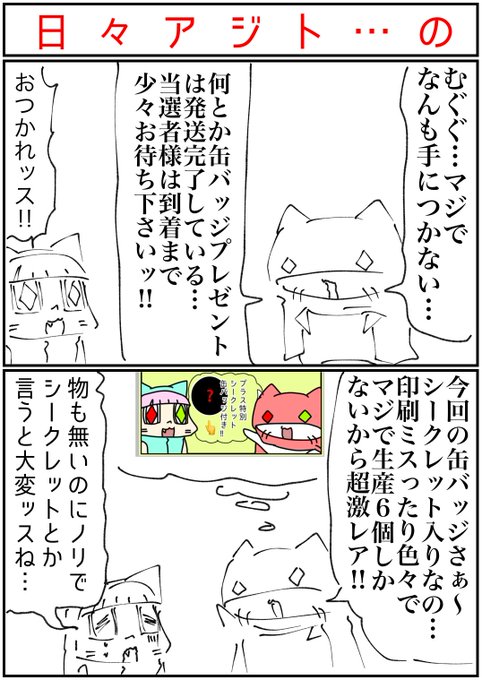 日々アジト…の
むぐぐ…マジで
なんも手につかない…
何とか缶バッジプレゼント
は発送完了している…
当選者様は到着まで
少々お待ち下さいッ!!
おつかれッス!!
今回の缶バッジさぁ～
シークレット入りなの…
印刷ミスったり色々で
マジで生産6個しか
ないから超激レア!!
プラス特別
シークレット
缶バッジ付き!!
?
物も無いのにノリで
シークレットとか
言うと大変ッスね…